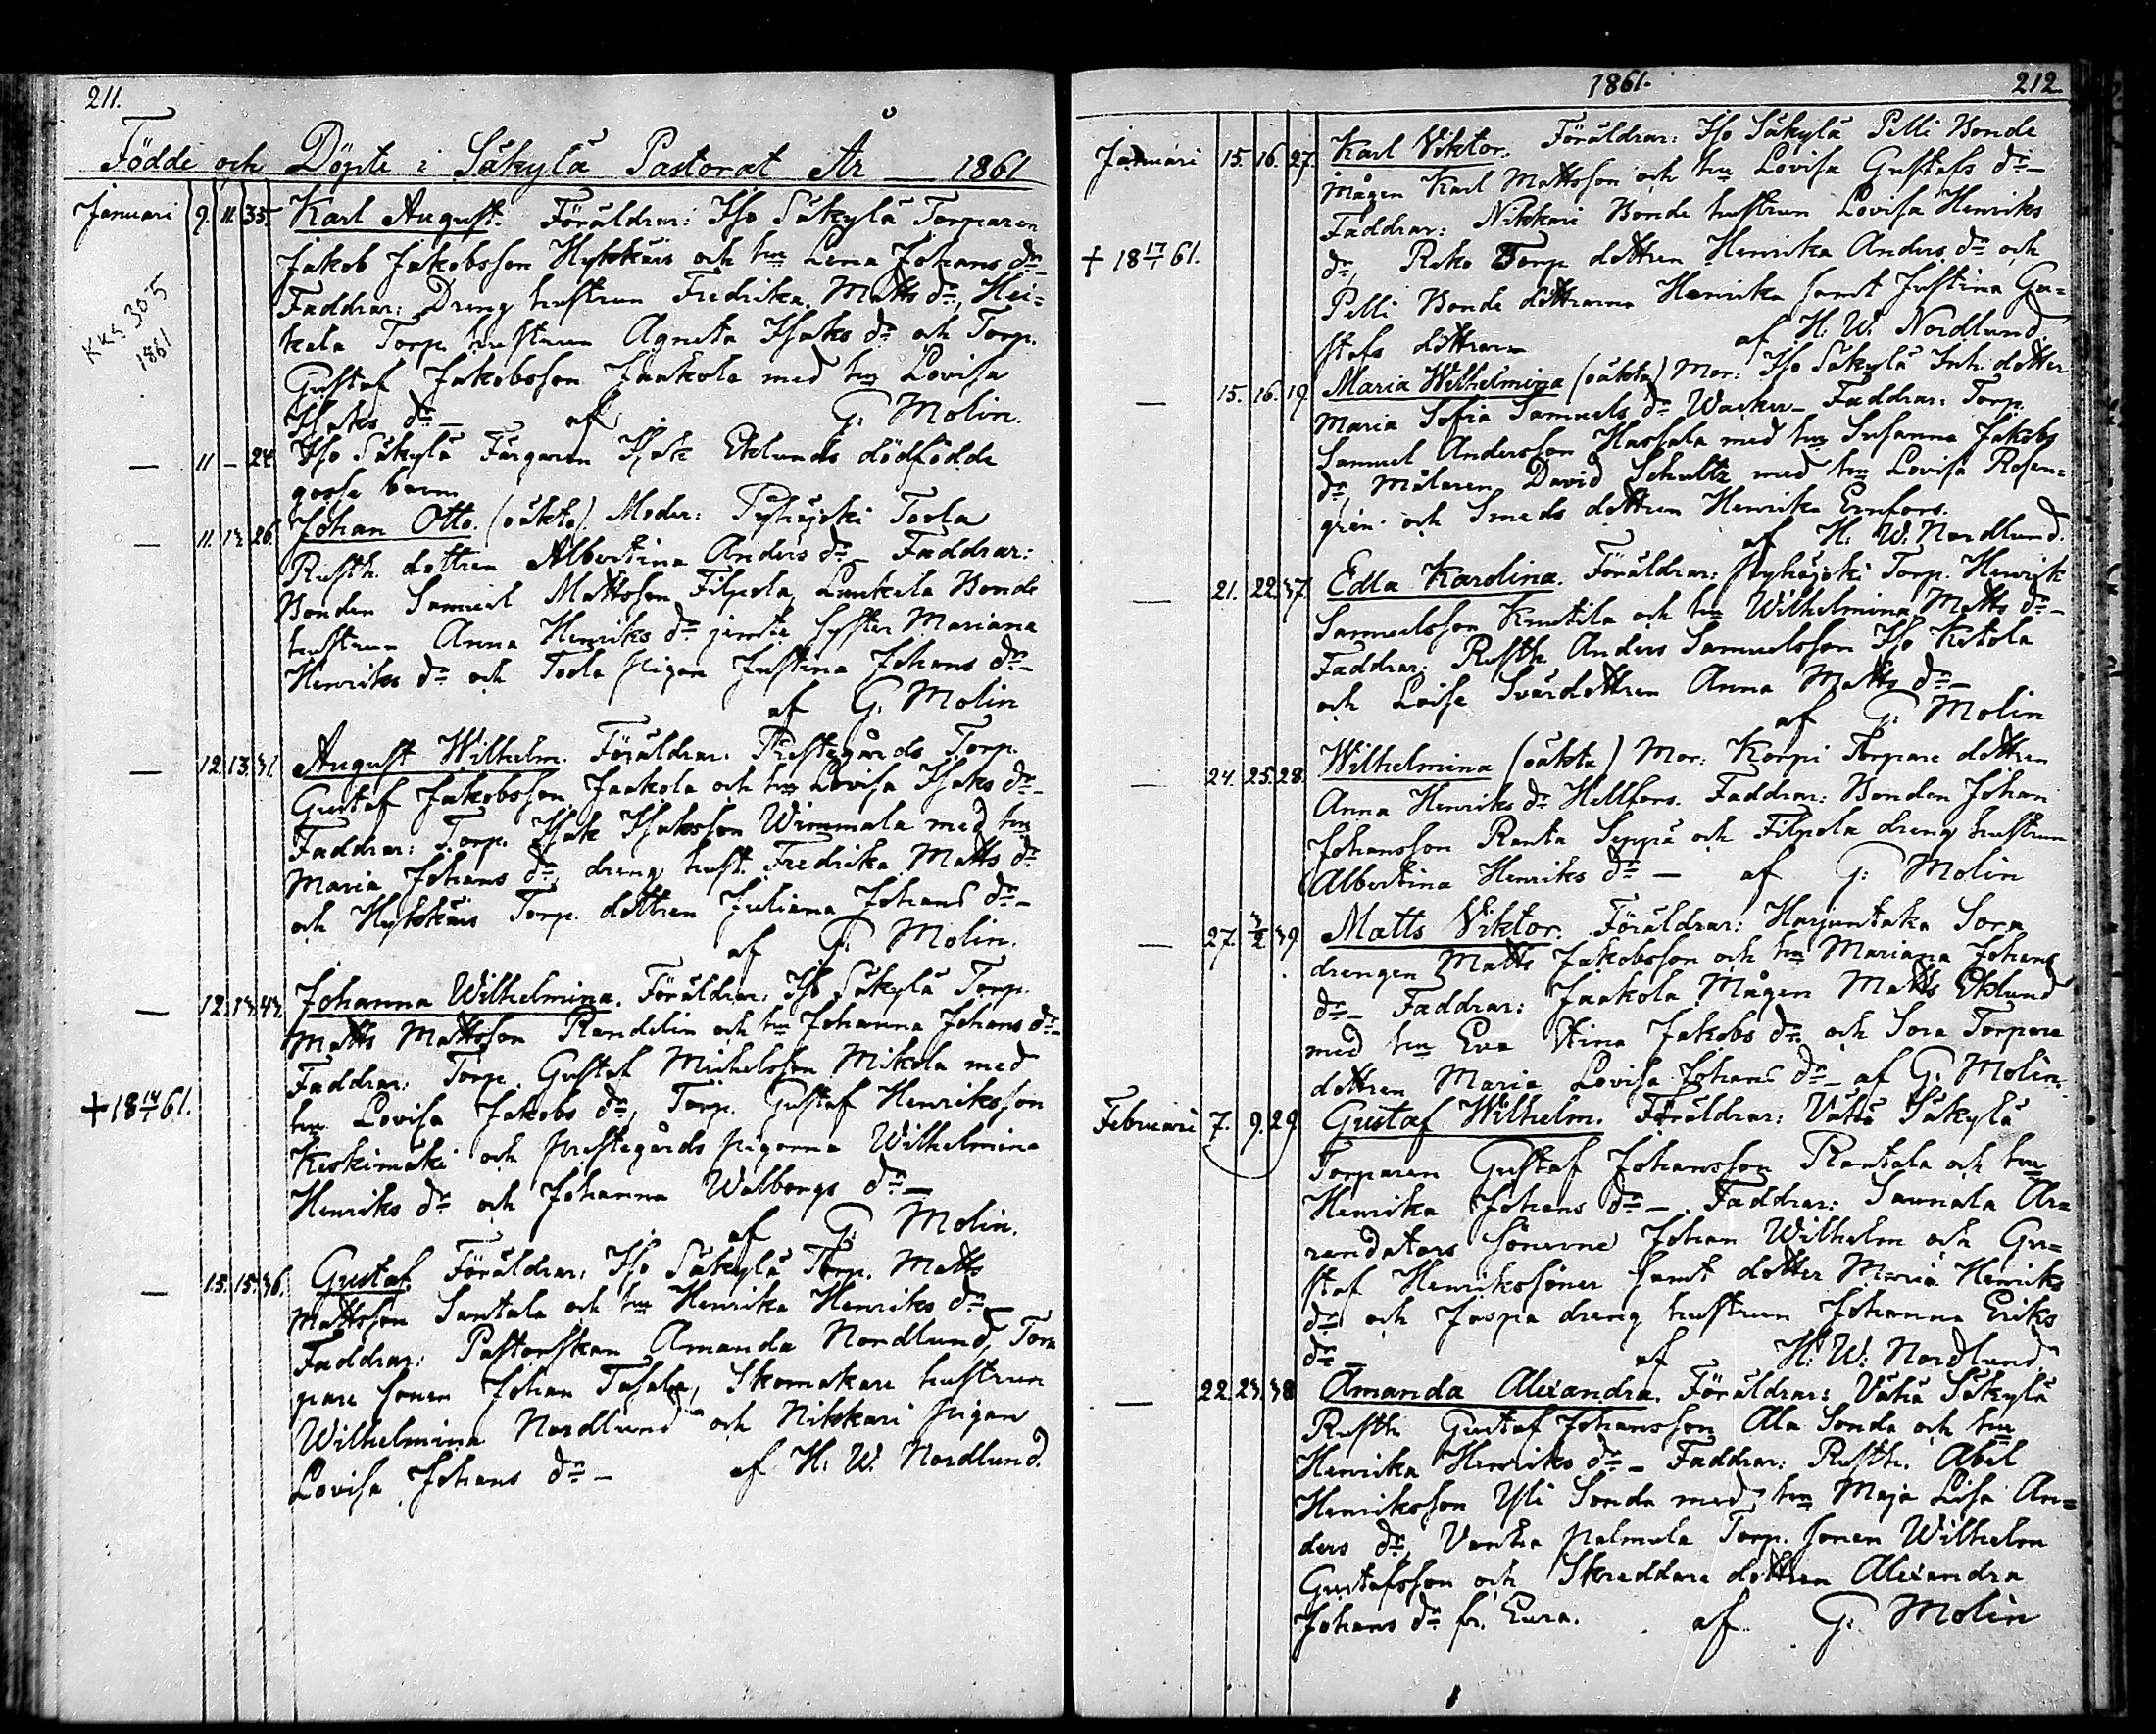 211.
Födde och Döpte i Säkylä Pastorat År — 1861
Januari 9. 11. 35. Karl August. Föräldrar: Iso Säkylä Torparen
Jakob Jakobsson Hykkäis och hu Lena Johans dr
KKS 305
1861
Faddrar: Dreng hustrun Fredrika Matts dr, Hei=
kela Torp. hustrun Agneta Isaks dr och Torp.
Gustaf Jakobsson Jaakola med hu Lovisa
Isaks dr — af G: Molin.
— 11 — 24 Iso Säkylä Färgaren Isak Eklunds dödfödde
gosse barn
— 11. 12. 26. Johan Otto. (oäkta). Moder: Pyhäjoki Tosla
Rusth. dottren Albertina Anders dr — Faddrar:
Bonden Samuel Mattsson Filpola, Lunkela Bonde
hustrun Anna Henriks dr jemte syster Mariana
Henriks dr och Tosla pigan Justina Johans dr —
af G: Molin
— 12. 13. 31. August Wilhelm. Föräldrar: Prestegårds Torp.
Gustaf Jakobsson Jaakola och hu Lovisa Isaks dr —
Faddrar: Torp. Isak Isaksson Wimmala med hu
Maria Johans dr, dreng hust. Fredrika Matts dr
och Hykkäis Torp. dottren Juliana Johans dr —
af G: Molin.
— 12. 13. 43. Johanna Wilhelmina. Föräldrar: Iso Säkylä Torp.
Matts Mattsson Randelin och hu Johanna Johans dr —
Faddrar: Torp. Gustaf Michelsson Mikola med
+ 18 14/1 61. hu Lovisa Jakobs dr, Torp. Gustaf Henriksson
Keskimäki och prestegårds pigorna Wilhelmina
Henriks dr och Johanna Walborgs dr —
af G: Molin.
— 13. 15. 36. Gustaf. Föräldrar: Iso Säkylä Torp. Matts
Mattsson Santala och hu Henrika Henriks dr —
Faddrar: Pastorskan Amanda Nordlund, Tor=
pare sonen Johan Tasala, Skomakare hustrun
Wilhelmina Nordlund och Nikkari pigan
Lovisa Johans dr — af H: W: Nordlund.
1861. 212
Januari 15. 16. 27. Karl Viktor. Föräldrar: Iso Säkylä Pelli Bonde
mågen Karl Mattsson och hu Lovisa Gustafs dr —
Faddrar: Nikkari Bonde hustrun Lovisa Henriks
+ 18 17/1 61. dr, Reko Torp dottren Henrika Anders dr och
Pelli Bonde döttrarna Henrika samt Justina Gu=
stafs döttrar — af H: W: Nordlund.
— 15. 16. 19. Maria Wilhelmina (oäkta) Mor: Iso Säkylä Inh. dotter
Maria Sofia Samuels dr Wacker — Faddrar: Torp.
Samuel Andersson Hassala med hu Susanna Jakobs
dr, Målaren David Schultz med hu Lovisa Rosen=
grén och Smeds dottren Henrika Ernfors.
af H: W: Nordlund.
— 21. 22. 37. Edla Karolina. Föräldrar: Pyhäjoki Torp. Henrik
Samuelsson Knutila och hu Wilhelmina Matts dr —
Faddrar: Rusth. Anders Samuelsson Iso Ketola
och Loise Svärdottren Anna Matts dr —
af G: Molin
— 24. 25. 28. Wilhelmina (oäkta) Mor: Korpi Torpare dottren
Anna Henriks dr Hellfors. Faddrar: Bonden Johan
Johansson Ranta Seppä och Filpola dreng hustrun
Albertina Henriks dr — af G: Molin
— 27. 3/2 39. Matts Viktor. Föräldrar: Harjuntaka Sora
drengen Matts Jakobsson och hu Mariana Johans
dr — Faddrar: Jaakola Mågen Matts Eklund
med hu Eva Stina Jakobs dr och Sora Torpare
dottren Maria Lovisa Johans dr — af G: Molin.
Februari 7. 9. 29. Gustaf Wilhelm. Föräldrar: Vähä Säkylä
Torparen Gustaf Johansson Rantala och hu
Henrika Johans dr —. Faddrar: Saunala Ar=
rendators sönerne Johan Wilhelm och Gu=
staf Henrikssöner samt dotter Maria Henriks
dr och Jaspa dreng hustrun Johanna Eriks
dr — af H: W: Nordlund.
— 22. 23. 38. Amanda Alexandra. Föräldrar: Vähä Säkylä
Rusth Gustaf Johansson Ala Sonda och hu
Henrika Henriks dr — Faddrar: Rusth. Abel
Henriksson Yli Sonda med hu Maja Lisa An=
ders dr, Vanha palmula Torp. sonen Wilhelm
Gustafsson och Skreddare dottren Alexandra
Johans dr fr. Eura. af G: Molin